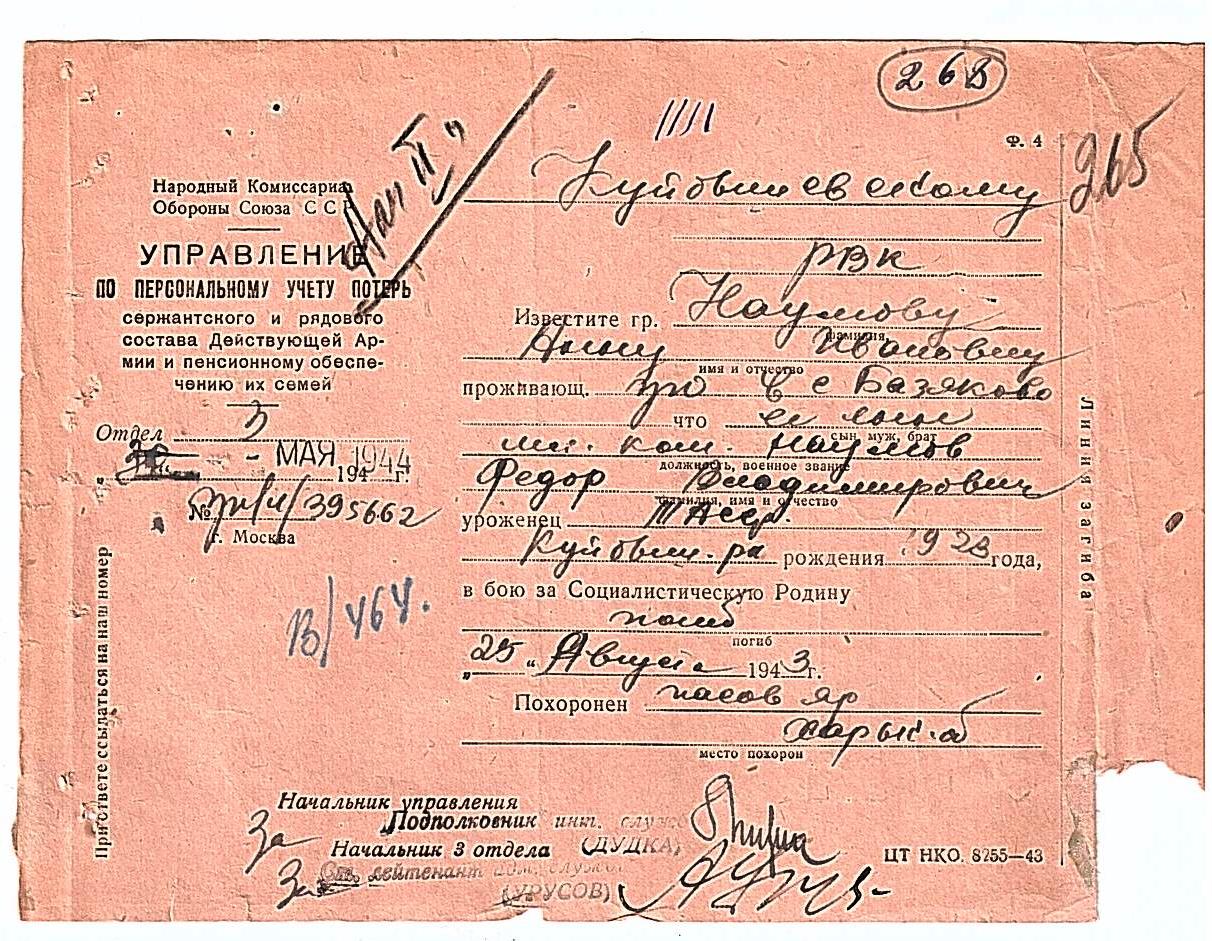 268
Ф. 4
265
Народный Комиссариат
Обороны Союза ССР
УПРАВЛЕНИЕ
ПО ПЕРСОНАЛЬНОМУ УЧЕТУ ПОТЕРЬ
сержантского и рядового
состава Действующей Ар-
мии и пенсионному обеспе-
чению их семей
Отдел 3
- МАЯ 1944
194 г.
№ 395662
г. Москва
В/464.
При ответе ссылаться на наш номер
Куйбышевскому
РВК
Известите гр. Наумову
фамилия,
Ивановну
имя и отчество
проживающ. в с Базяково
что ее сын
сын, муж, брат
мл. ком. Наумов
должность, военное звание
Федор Владимирович
фамилия, имя и отчество
уроженец ТАССР.
Куйбыш. р-на рождения 1923 года,
в бою за Социалистическую Родину
погиб
погиб
„25„ Августа 1943 г.
Похоронен Часов яр
Харьк. об
место похорон
Линия загиба
Начальник управления
За Подполковник инт. служб
Начальник 3 отдела (ДУДКА)
За лейтенант адм. службы
(УРУСОВ)
ЦТ НКО. 8255—43